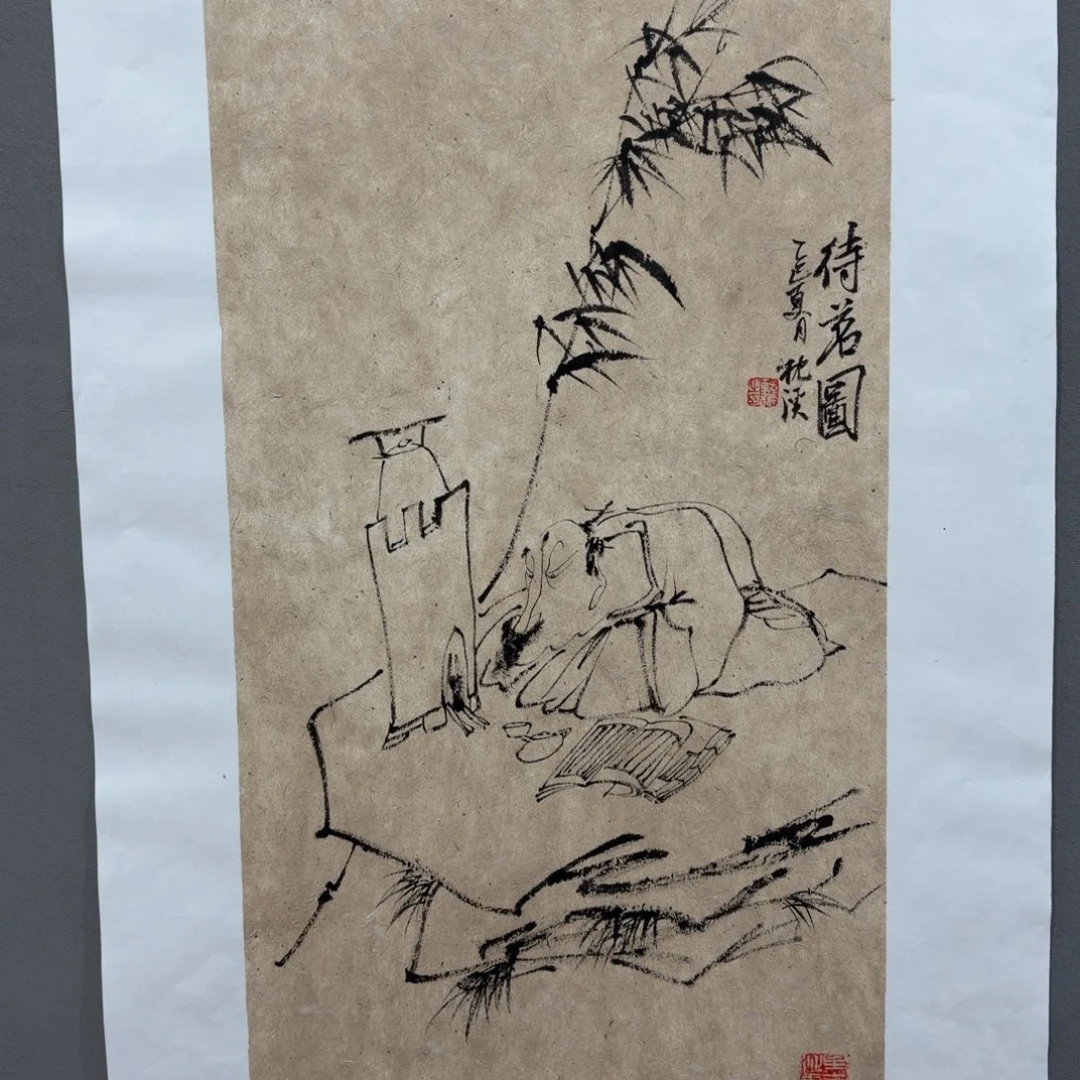 待茗圖
乙巳夏月 枕溪